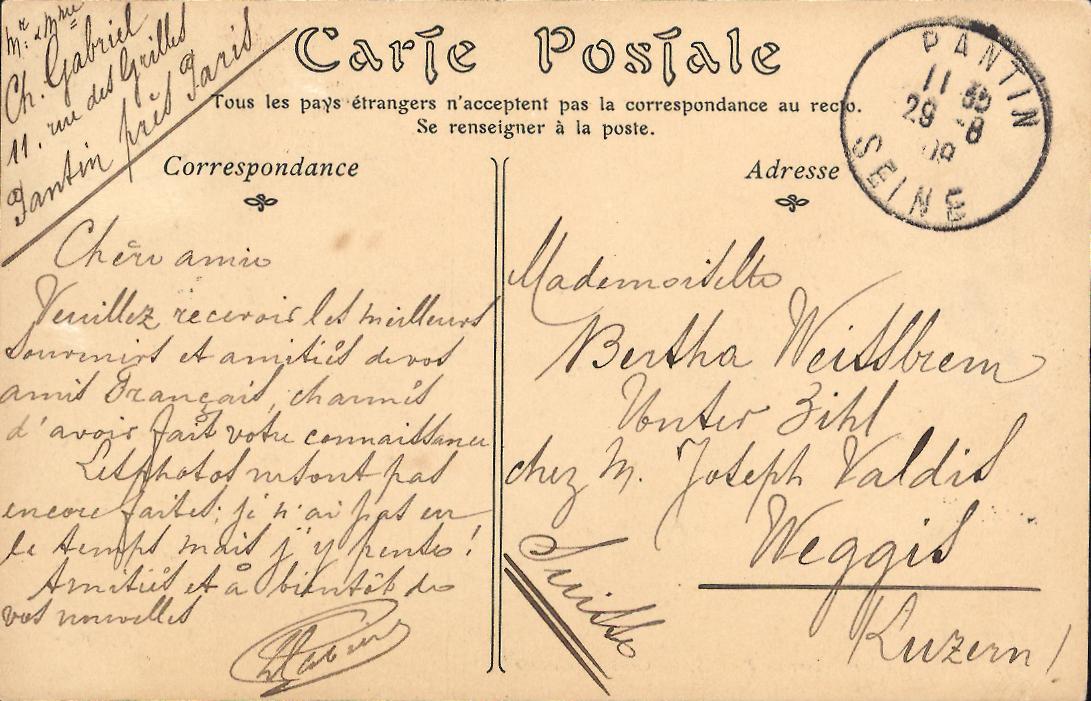 Mr & Mme
Ch. Gabriel
11. rue des Grilles
Pantin près Paris
Carte Postale
Tous les pays étrangers n'acceptent pas la correspondance au recto.
Se renseigner à la poste.
Correspondance
Chère amie
Veuillez recevoir les meilleurs
souvenirs et amitiés de vos
amis Français, charmés
d'avoir fait votre connaissance
Les photos ne sont pas
encore faites; je n'ai pas eu
le temps mais j'y pense!
Amitiés et à bientôt de
vos nouvelles
Adresse
PANTIN
11 35
29 -8
08
SEINE
Mademoiselle
Bertha Weissbrem
Unter Zihl
chez M. Joseph Valdis
Weggis
Luzern!
Suisse